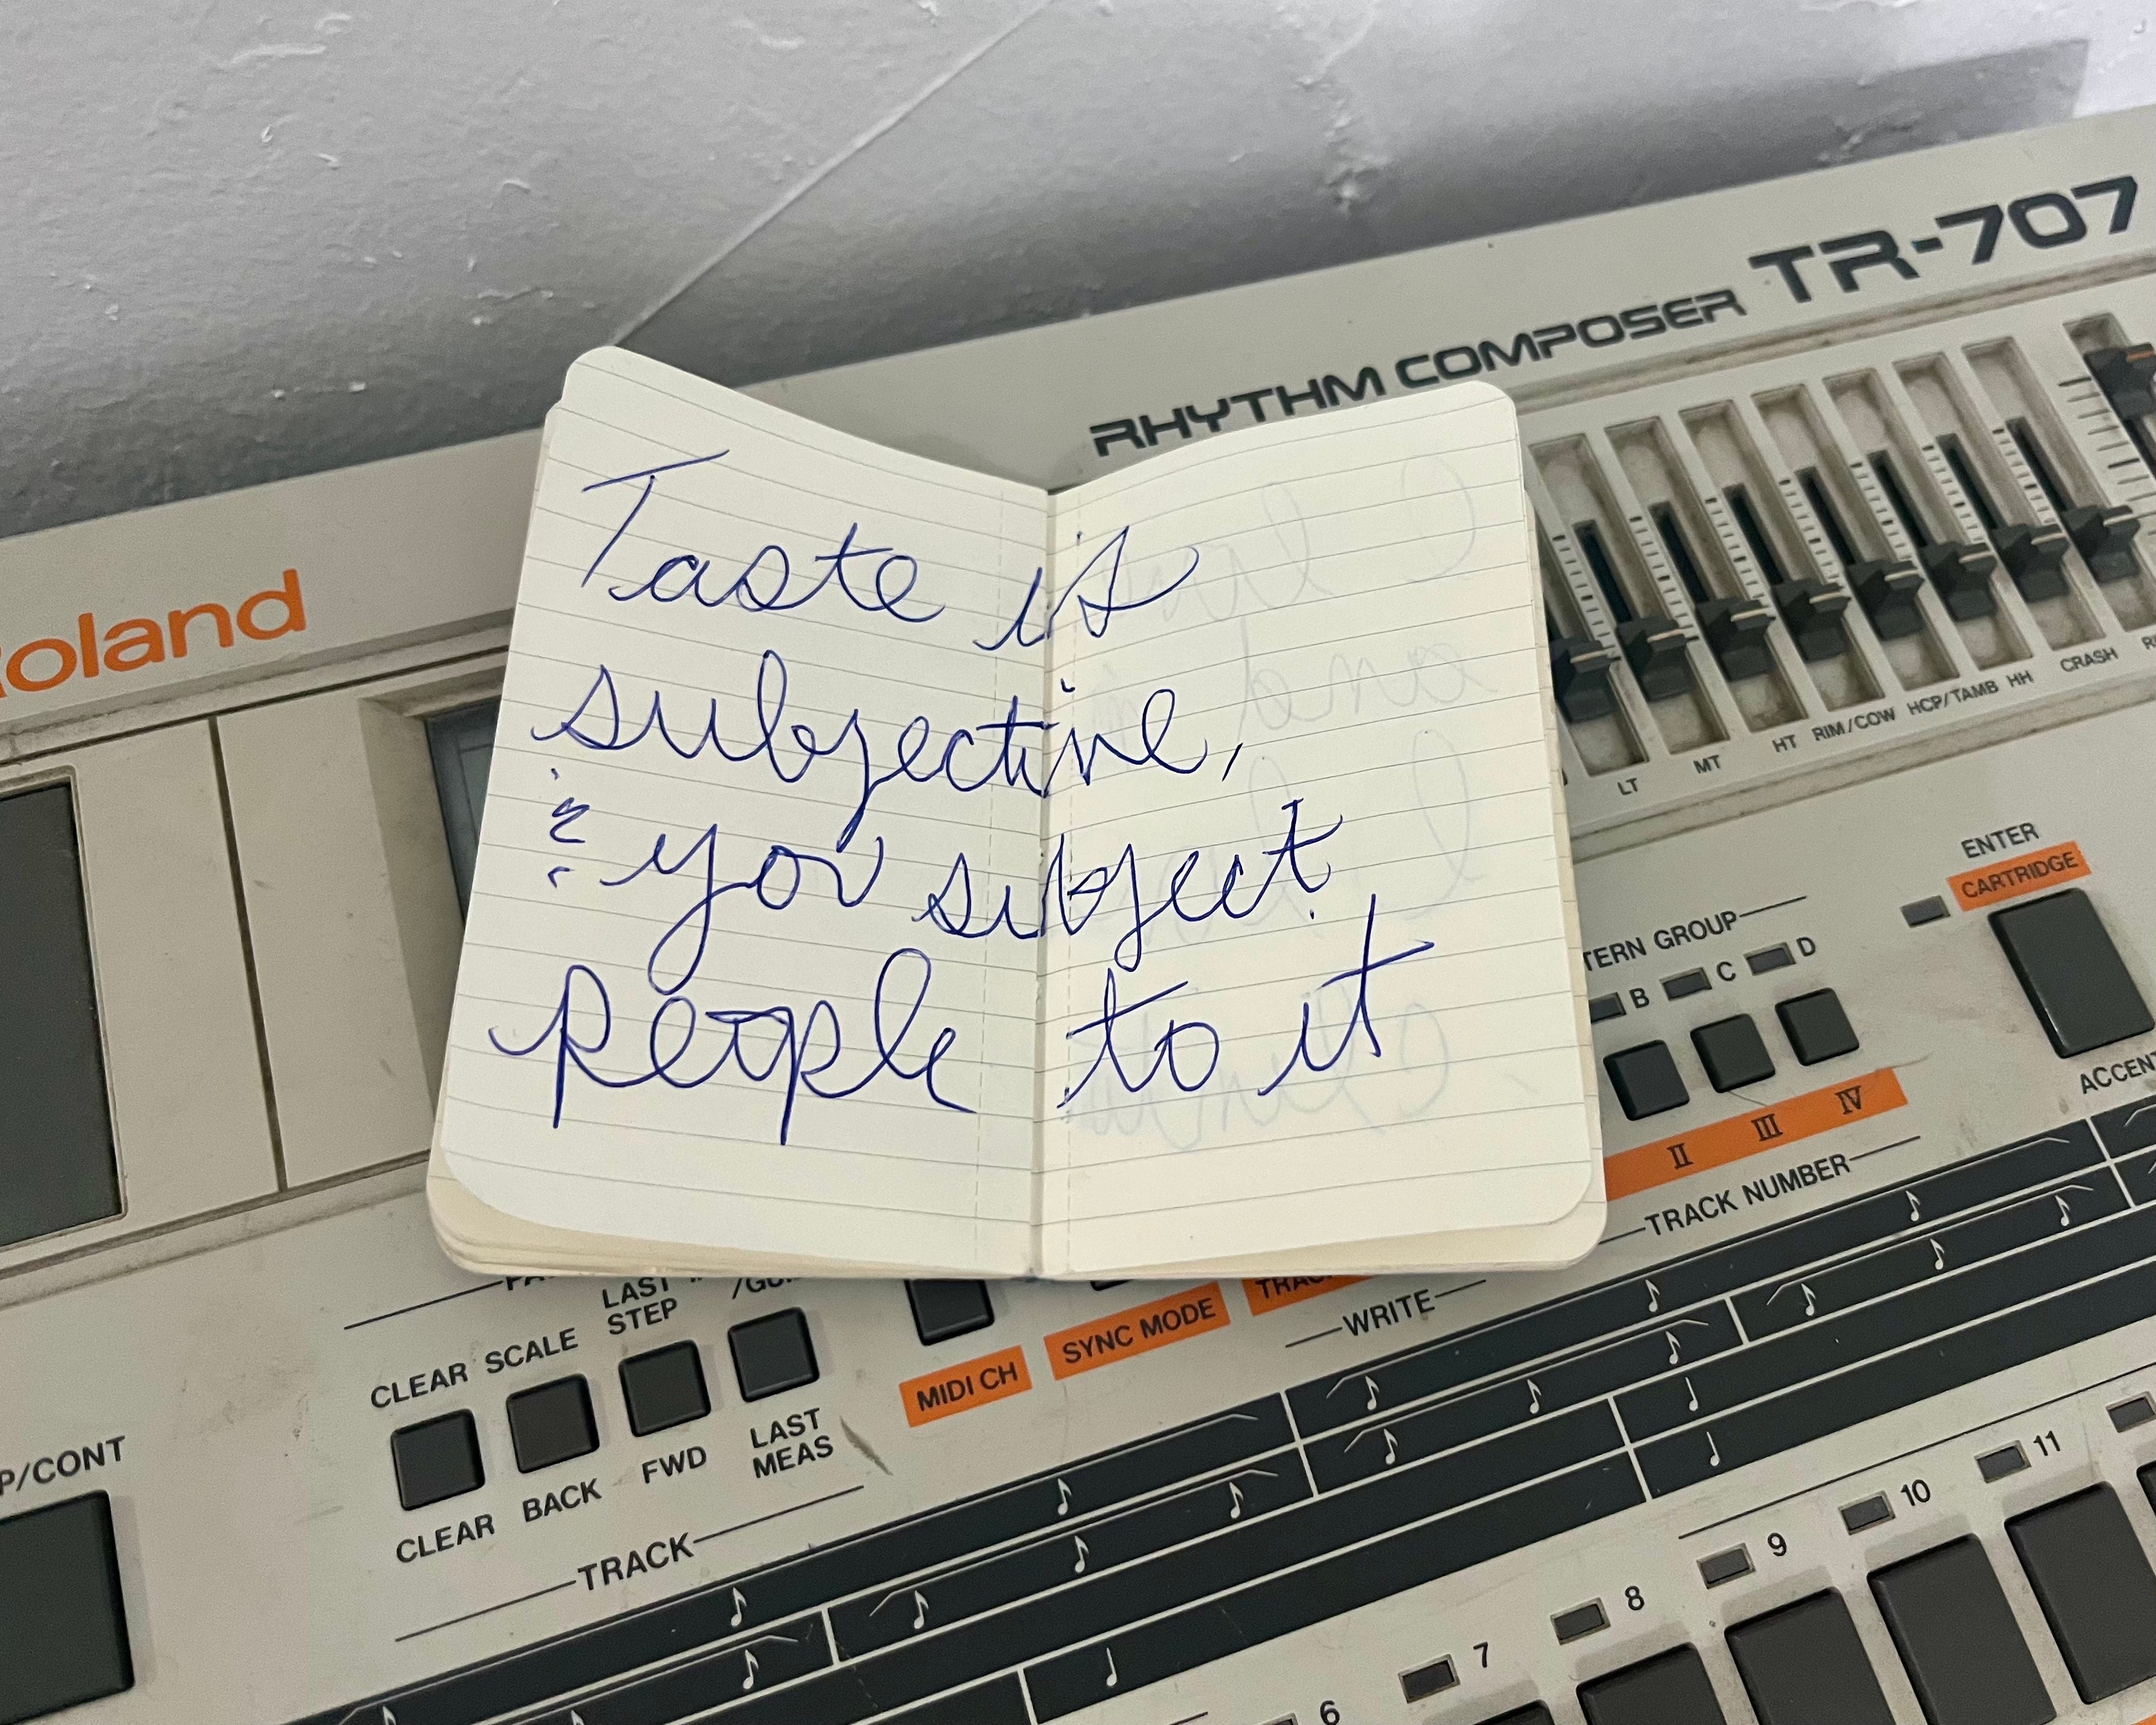 RHYTHM COMPOSER TR-707
oland
Taste is
subjective,
& you subject
people to it
LT MT HT RIM/COW HCP/TAMB HH CRASH
ENTER
CARTRIDGE
TERN GROUP
B C D
ACCENT
II III IV
TRACK NUMBER
LAST
STEP
CLEAR SCALE
WRITE
MIDI CH SYNC MODE
P/CONT
CLEAR BACK FWD LAST
MEAS
TRACK
6 7 8 9 10 11